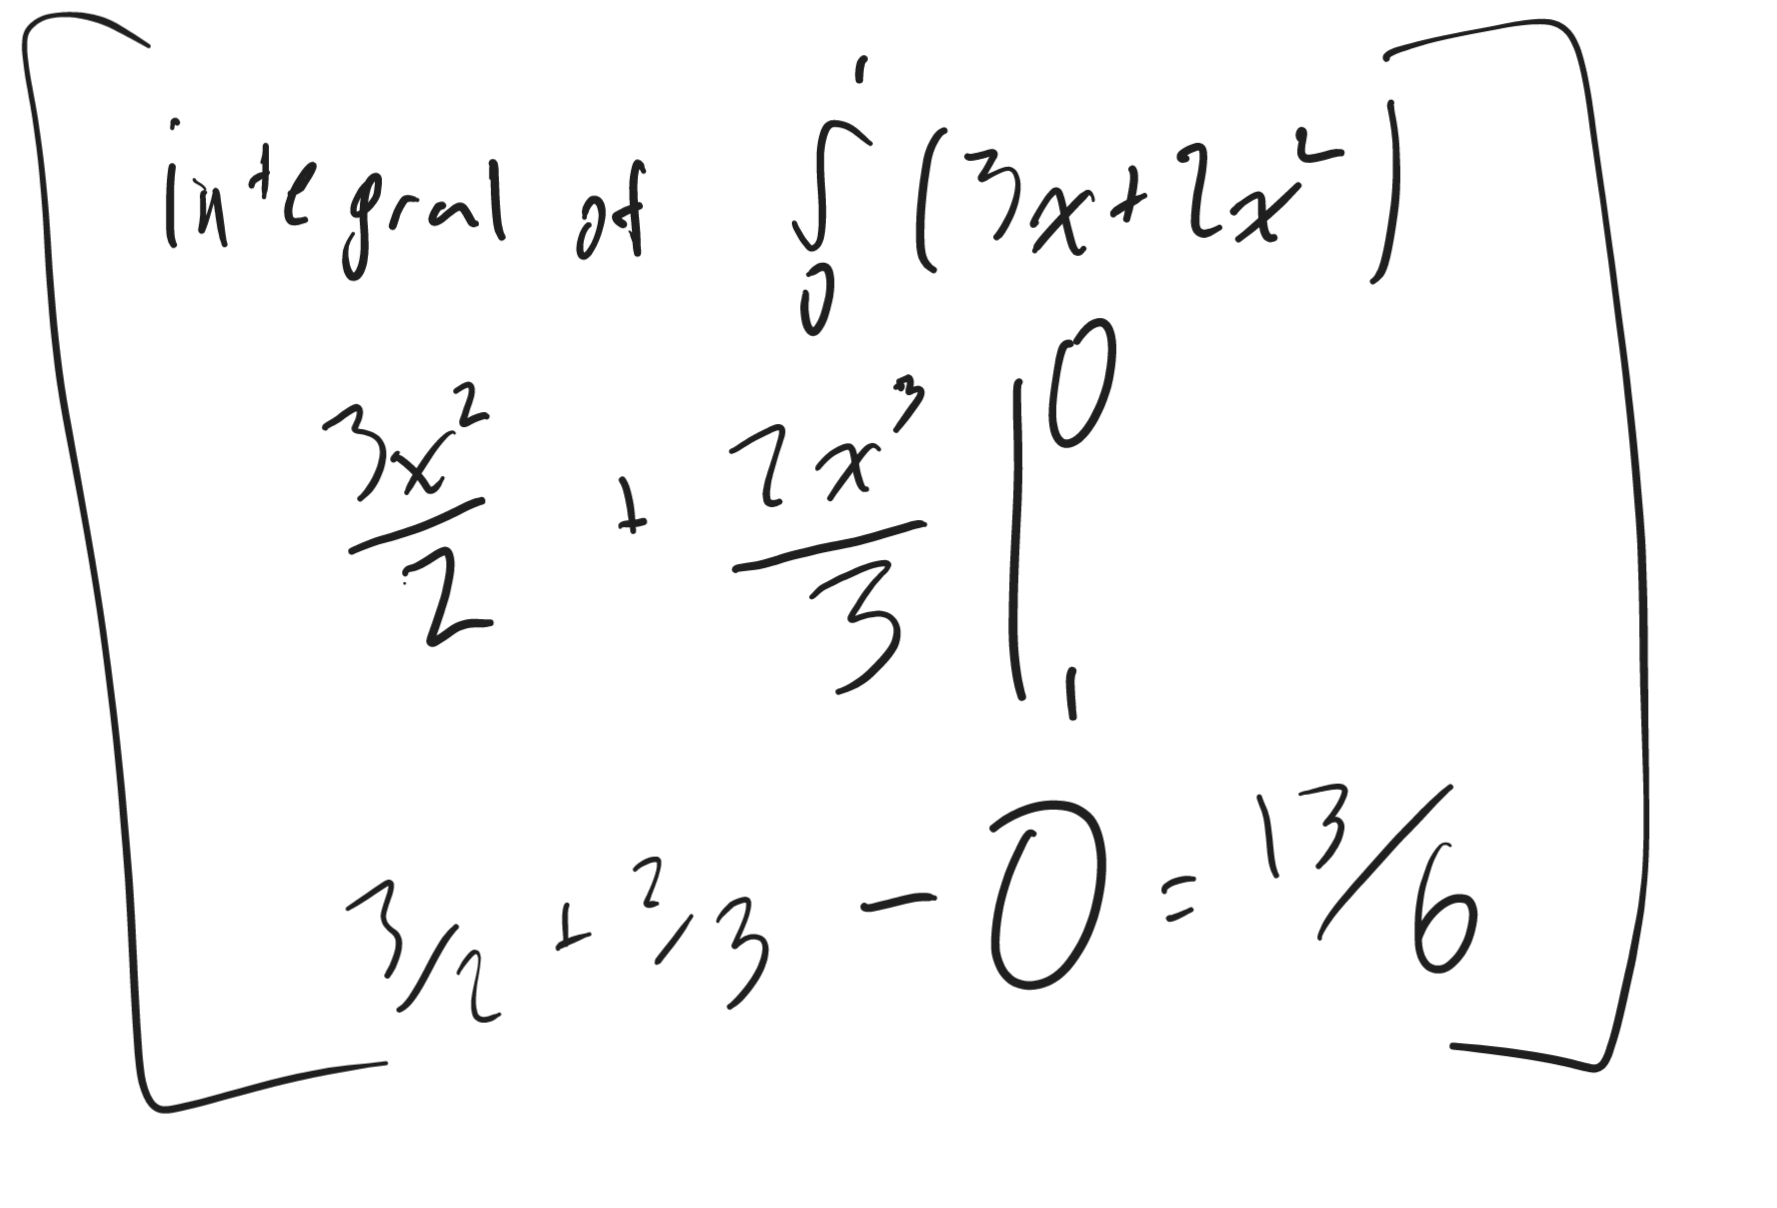 integral of ∫₀¹ (3x+2x²)
3x²/2 + 2x³/3 |₁⁰
3/2 + 2/3 − 0 = 13/6